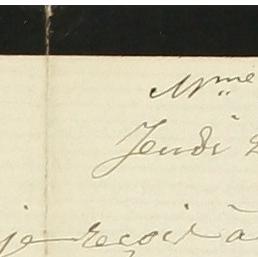 Mme
Jeudi 2
je reçois à